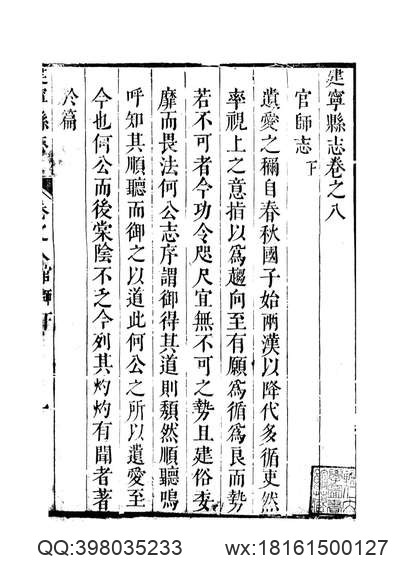 建寧縣志卷之八
官師志 下
遺愛之稱自春秋國子始兩漢以降代多循吏然
率視上之意指以爲趨向至有願爲循爲良而勢
若不可者今功令咫尺宜無不可之勢且建俗委
靡而畏法何公志序謂御得其道則頽然順聽嗚
呼知其順聽而御之以道此何公之所以遺愛至
今也何公而後棠陰不乏今列其灼灼有聞者著
於篇
QQ:398035233
wx:18161500127